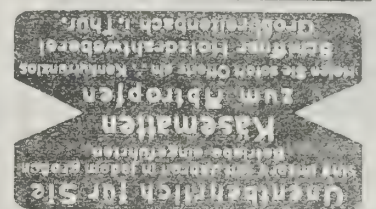 Unentbehrlich für Sie
sind meine in jedem großen
Betriebe eingeführten
Käsematten
zum Abtropfen
Holen Sie sofort Offerte ein. Konkurrenzlos
Holzdrahtweberei
Großbreitenbach i. Thür.